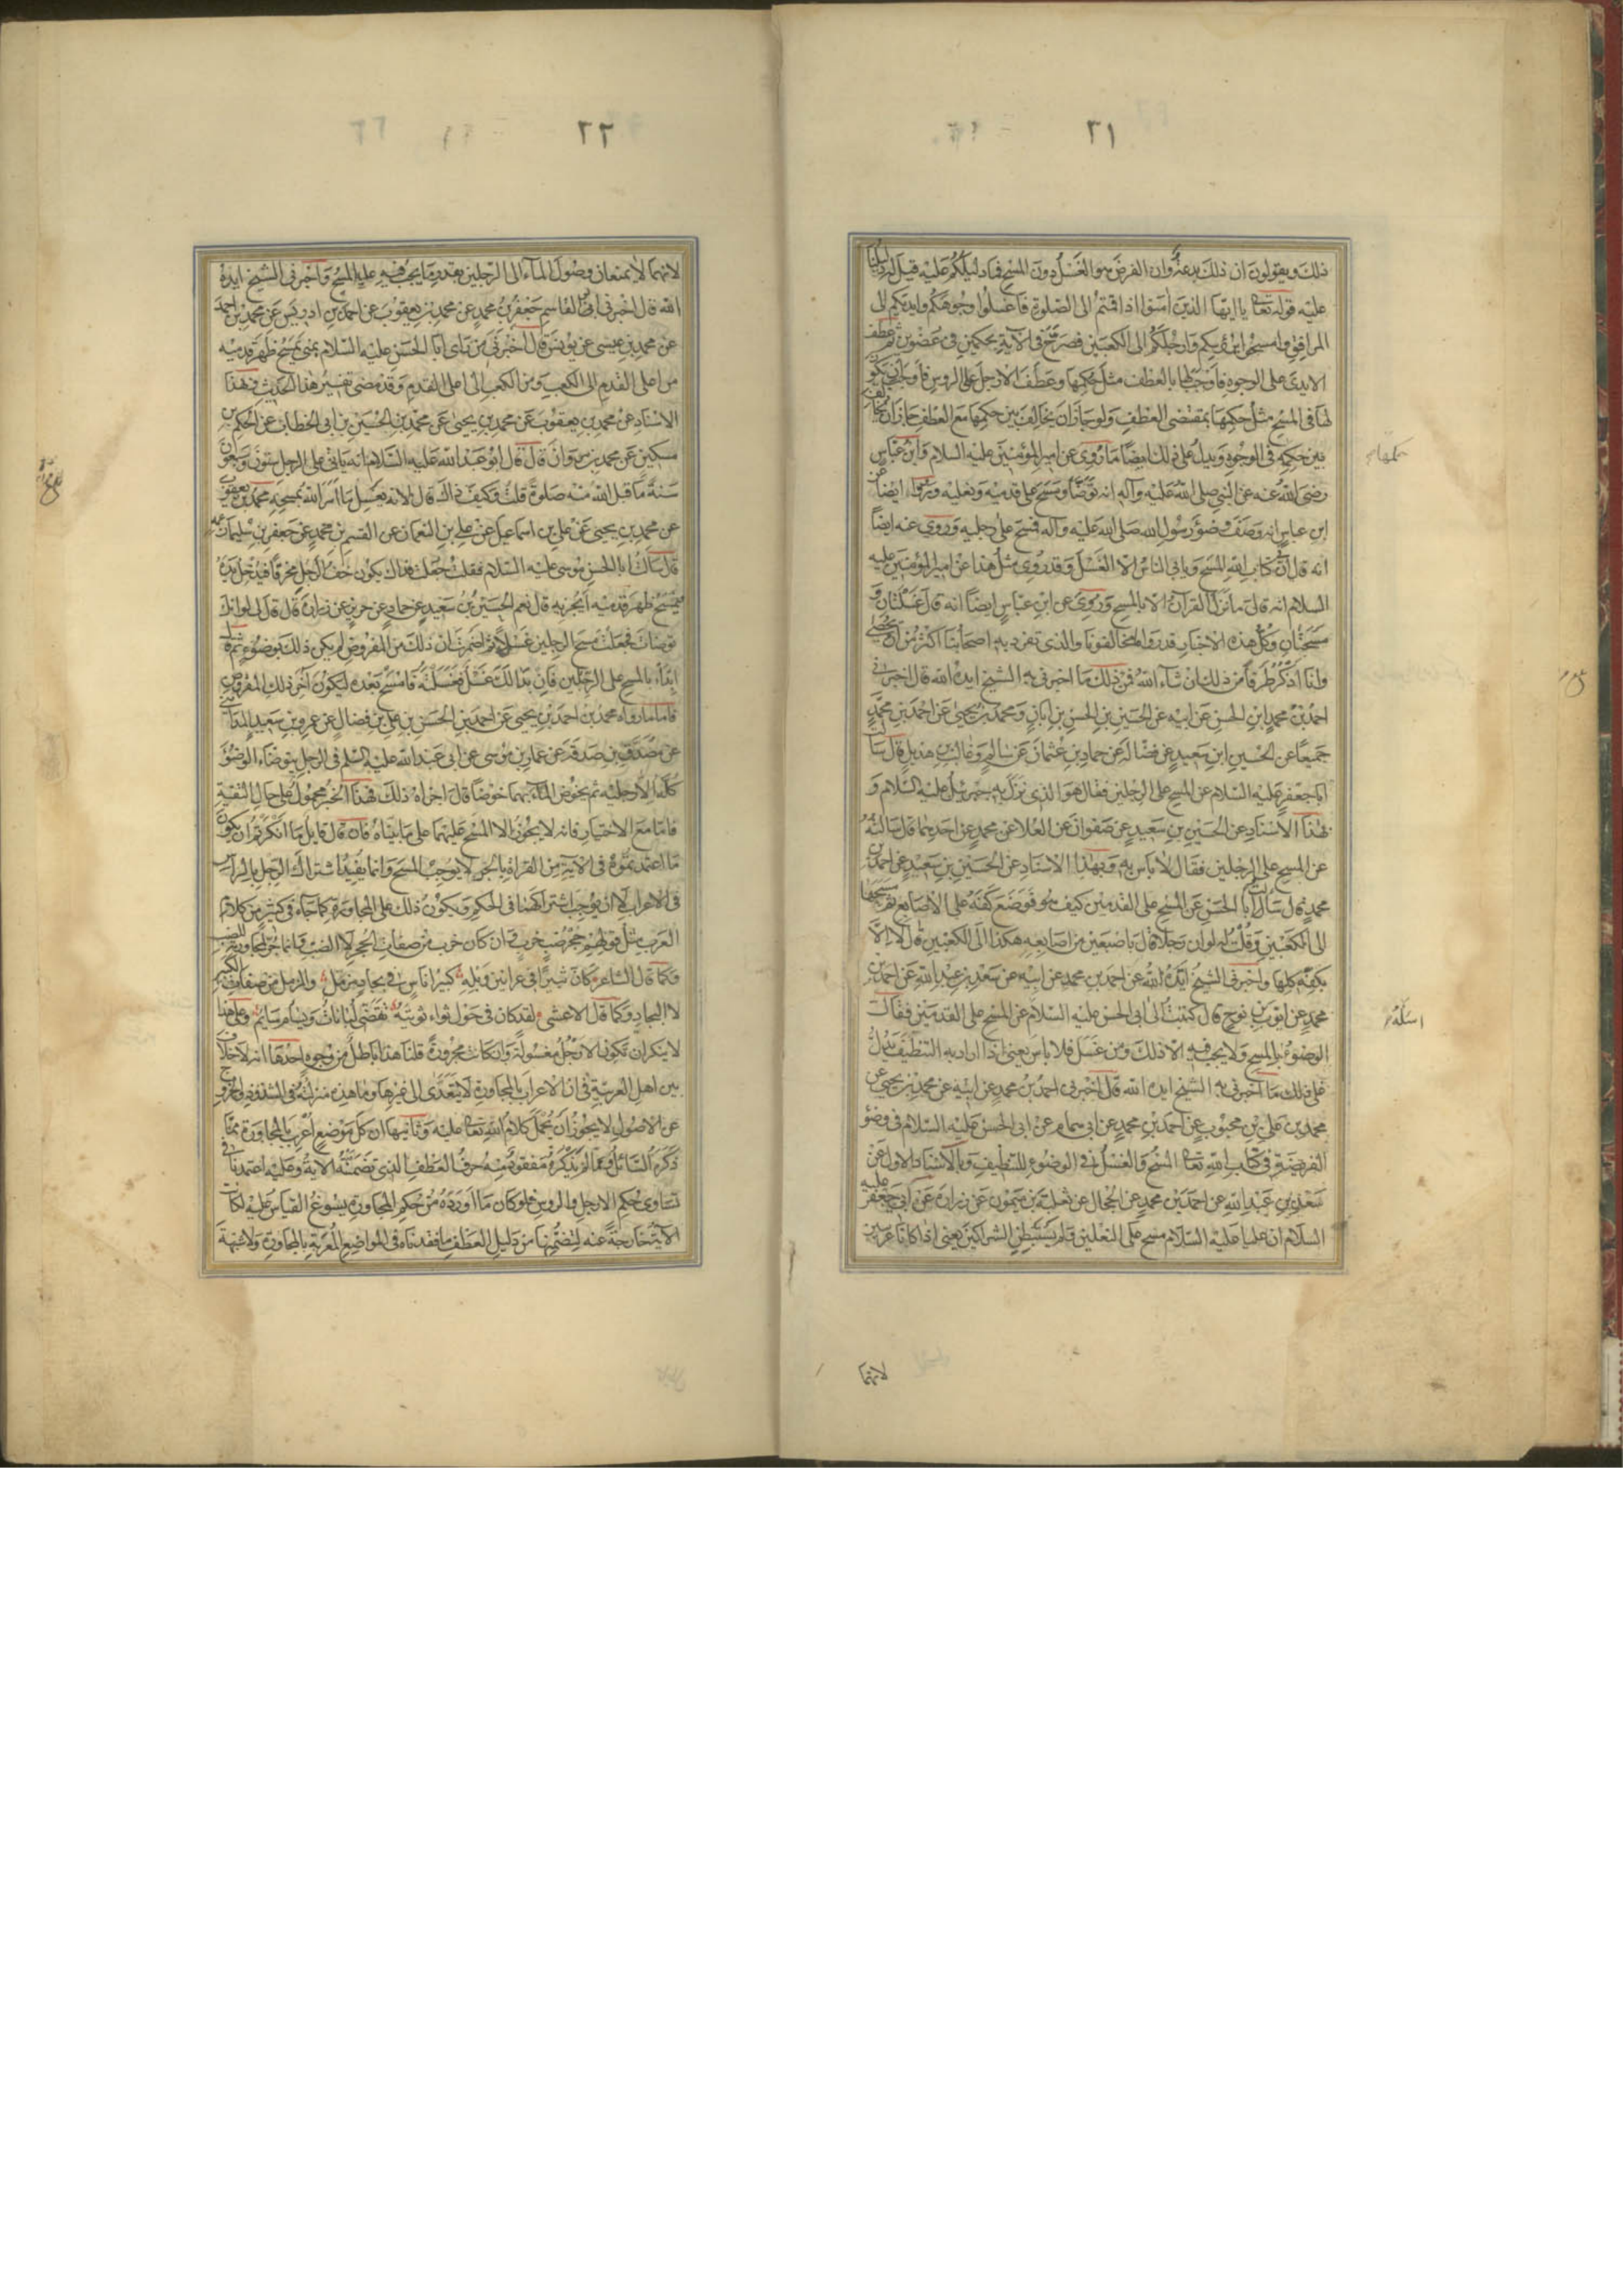 ٢١
ذلك ويقولون ان ذلك بدعة وان الفرض هو الغسل دون المسح فما دليلكم عليه قيل له دليلنا
عليه قوله تعالى يا ايها الذين امنوا اذا قمتم الى الصلوة فاغسلوا وجوهكم وايديكم الى
المرافق وامسحوا برؤسكم وارجلكم الى الكعبين فصرح في الاية بحكمين في عضوين ثم عطف
الايدى على الوجوه فاوجب لها بالعطف مثل حكمها وعطف الارجل على الروس فاوجب ان يكون
لها في المسح مثل حكمها بمقتضى العطف ولو جاز ان يخالف بين حكمها مع العطف جاز ان يخالف
بين حكمه في الوجوه ويدل على ذلك ايضا ما روى عن امير المؤمنين عليه السلام وابن عباس
رضى الله عنه عن النبي صلى الله عليه وآله انه توضأ ومسح على قدميه ونعليه وروى ايضا عن
ابن عباس انه وصف وضوء رسول الله صلى الله عليه وآله فمسح على رجليه وروى عنه ايضا
انه قال ان كتاب الله المسح ويابى الناس الا الغسل وقد روى مثل هذا عن امير المؤمنين عليه
السلام انه قال ما نزل القران الا بالمسح وروى عن ابن عباس ايضا انه قال غسلتان و
مسحتان وكل هذه الاخبار قد رواها مخالفونا والذى تفرد به اصحابنا اكثر من ان يحصى
وانا اذكر طرفا من ذلك ان شاء الله فمن ذلك ما اخبرنى به الشيخ ايده الله قال اخبرنى
احمد بن محمد ابن الحسن عن ابيه عن الحسين بن الحسن بن ابان ومحمد بن يحيى عن احمد بن محمد
جميعا عن الحسين ابن سعيد عن فضالة عن حماد بن عثمان عن سالم وغالب بن هذيل قال سالت
ابا جعفر عليه السلام عن المسح على الرجلين فقال هو الذى نزل به جبرئيل عليه السلام و
بهذا الاسناد عن الحسين بن سعيد عن صفوان عن العلا عن محمد عن احدهما قال سالته
عن المسح على الرجلين فقال لا باس به وبهذا الاسناد عن الحسين بن سعيد عن احمد بن
محمد قال سألت ابا الحسن عن المسح على القدمين كيف هو فوضع كفه على الاصابع ثم مسحها
الى الكعبين وقلت له لو ان رجلا قال باصبعين من اصابعه هكذا الى الكعبين قال لا الا
بكفه كلها واخبرنى الشيخ ايده الله عن احمد بن محمد عن ابيه عن سعد بن عبد الله عن احمد بن
محمد عن ايوب بن نوح قال كتبت الى ابى الحسن عليه السلام عن المسح على القدمين فقال
الوضوء بالمسح ولا يجب فيه الا ذلك ومن غسل فلا باس يعنى اذا اراد به التنظيف يدل
على ذلك ما اخبرنى به الشيخ ايده الله قال اخبرنى احمد بن محمد عن ابيه عن محمد بن يحيى عن
محمد بن على بن محبوب عن احمد بن محمد عن ابى همام عن ابى الحسن عليه السلام في وضوء
الفريضة في كتاب الله تعالى المسح والغسل في الوضوء للتنظيف وبالاسناد الاول عن
سعد بن عبد الله عن احمد بن محمد عن الحجال عن ثعلبة بن ميمون عن زرارة عن ابى جعفر عليه
السلام ان عليا عليه السلام مسح على النعلين ولم يستبطن الشراكين يعنى اذا كانا عربيين
لانهما
٢٢
لانهما لا يمنعان وصول الماء الى الرجلين بقدر ما يجب فيه عليه المسح واخبرنى الشيخ ايده
الله قال اخبرنى ابو القاسم جعفر بن محمد عن محمد بن يعقوب عن احمد بن ادريس عن محمد بن احمد
عن محمد بن عيسى عن يونس قال اخبرنى من راى ابا الحسن عليه السلام بمنى يمسح ظهر قدميه
من اعلى القدم الى الكعب ومن الكعب الى اعلى القدم وقد مضى تفسير هذا الحديث وبهذا
الاسناد عن محمد بن يعقوب عن محمد بن يحيى عن محمد بن الحسين بن ابى الخطاب عن الحكم بن
مسكين عن محمد بن مروان قال قال ابو عبد الله عليه السلام انه ياتى على الرجل ستون وسبعون
سنة ما قبل الله منه صلوة قلت وكيف ذاك قال لانه يغسل ما امر الله بمسحه محمد بن يعقوب
عن محمد بن يحيى عن على بن اسماعيل عن على بن النعمان عن القسم بن محمد عن جعفر بن سليمان عمه
قال سألت ابا الحسن موسى عليه السلام فقلت جعلت فداك يكون خف الرجل مخرقا فيدخل يده
فيمسح ظهر قدميه ايجزيه قال نعم الحسين بن سعيد عن حماد عن حريز عن زرارة قال قال لى لو انك
توضأت فجعلت مسح الرجلين غسلا ثم اضمرت ان ذلك من المفروض لم يكن ذلك بوضوء ثم قال
ابدأ بالمسح على الرجلين فان بدا لك غسل فغسلته فامسح بعده ليكون آخر ذلك المفروض
فاما ما رواه محمد بن احمد بن يحيى عن احمد بن الحسن بن على بن فضال عن عمرو بن سعيد المدائنى
عن مصدق بن صدقة عن عمار بن موسى عن ابى عبد الله عليه السلم في الرجل يتوضاء الوضوء
كله الا رجليه ثم يخوض الماء بهما خوضا قال اجزاه ذلك فهذا الخبر محمول على حال التقية
فاما مع الاختيار فانه لا يجوز الا المسح عليهما على ما بيناه فان قال قايل ما انكرتم ان يكون
ما اعتمدتموه في الاية من القراة بالجر لا يوجب المسح وانما يفيد اشتراك الرجل بالراس
في الاعراب لا ان يوجب اشتراكهما في الحكم ويكون ذلك على المجاورة كما جاء في كثير من كلام
العرب مثل قولهم جحر ضب خرب وان كان خرب من صفات الحجر لا الضب وانما جر لمجاورته للضب
وكما قال الشاعر كان ثبيرا في عرانين وبله كبير اناس في بجاد مزمل والمزمل من صفات الكبير
لا البجاد وكما قال الاعشى لقد كان في حول ثواء ثويته تقضى لبانات ويسأم سائم وعلى هذا
لا ينكر ان تكون الارجل مغسولة وان كانت مجرورة قلنا هذا باطل من وجوه احدها انه لا خلاف
بين اهل العربية في ان الاعراب بالمجاورة لا يتعدى الى غيرها وما هذه منزلته في الشذوذ والخروج
عن الاصول لا يجوز ان يحمل كلام الله تعالى عليه وثانيها ان كل موضع اعرب بالمجاورة مما
ذكره السائل ومما لم يذكره مفقود منه حرف العطف الذى تضمنته الاية وعليه اعتمدنا في
تساوى حكم الارجل والروس فلو كان ما اورده من حكم المجاورة يسوغ القياس عليه لكانت
الاية خارجة عنه لتضمنها من دليل العطف ما فقدناه في المواضع المعربة بالمجاورة ولا شبهة